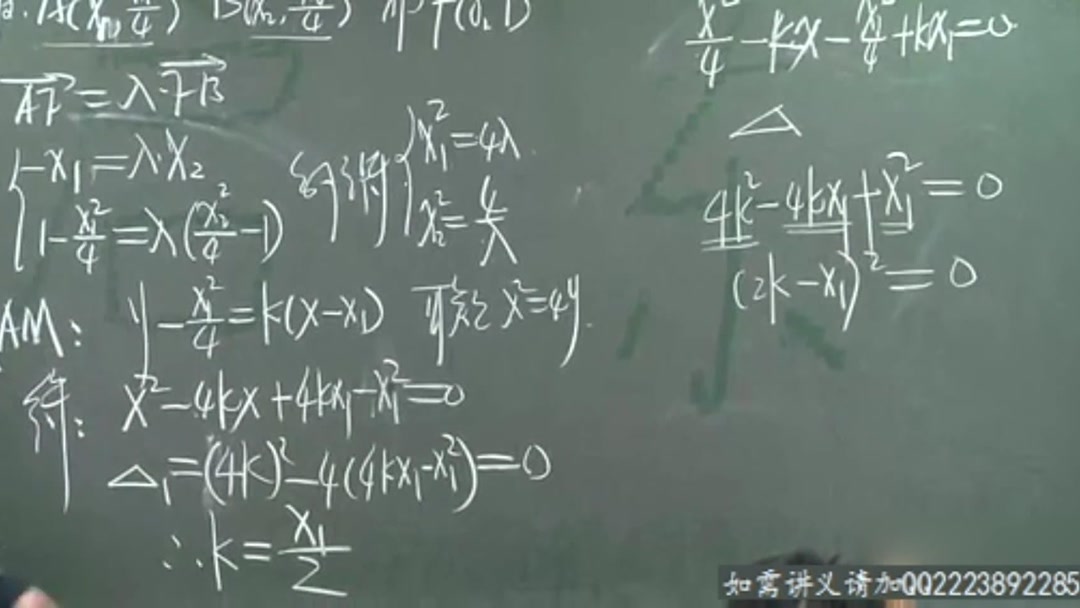 A(x₁, x₁²/4) B(x₂, x₂²/4) F(0, 1)
AF = λFB
{-x₁ = λ·x₂
1 - x₁²/4 = λ(x₂²/4 - 1)
{x₁² = 4λ
x₂² = 4/λ
AM: y - x₁²/4 = k(x - x₁) x² = 4y.
x² - 4kx + 4kx₁ - x₁² = 0
△₁ = (4k)² - 4(4kx₁ - x₁²) = 0
∴ k = x₁/2
x²/4 - kx - x₁²/4 + kx₁ = 0
△
4k² - 4kx₁ + x₁² = 0
(2k - x₁)² = 0
如需讲义请加QQ2223892285